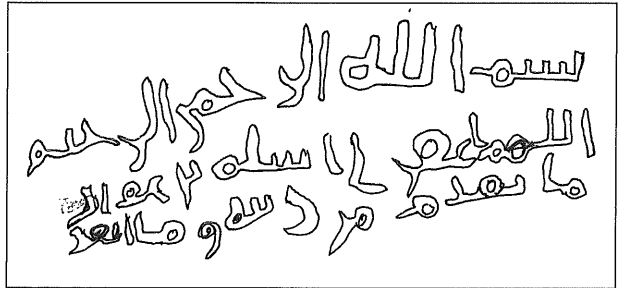 بسم الله الرحمن الرحيم
اللهم اغفر لاسلم بن
ما تقدم من ذنبه وما تاخر